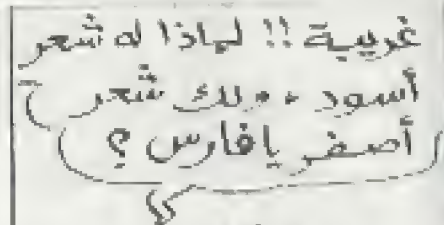 غريبة !! لماذا له شعر
أسود ، ولك شعر
أصفر يافارس ؟